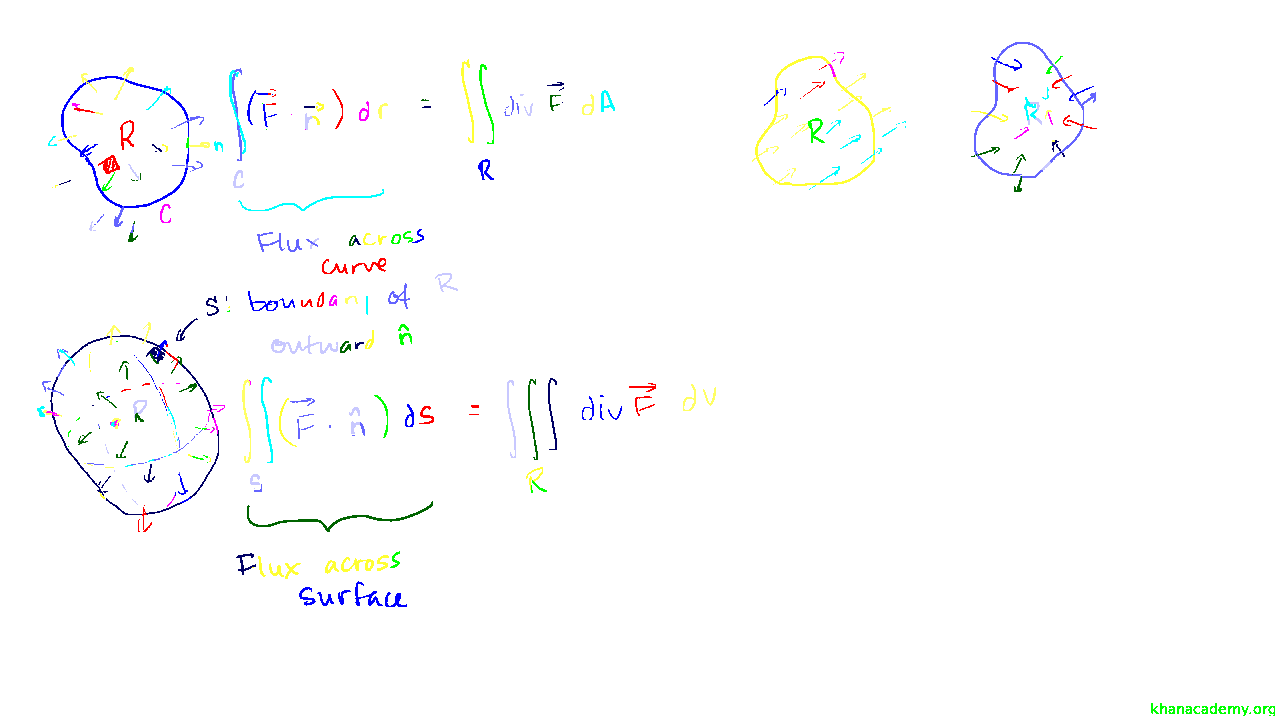 R
C
n
∫_C (F⃗ · n⃗) dr = ∬_R div F⃗ dA
Flux across
curve
R
R
S: boundary of R
outward n̂
R
∬_S (F⃗ · n̂) ds = ∭_R div F⃗ dv
Flux across
surface
khanacademy.org